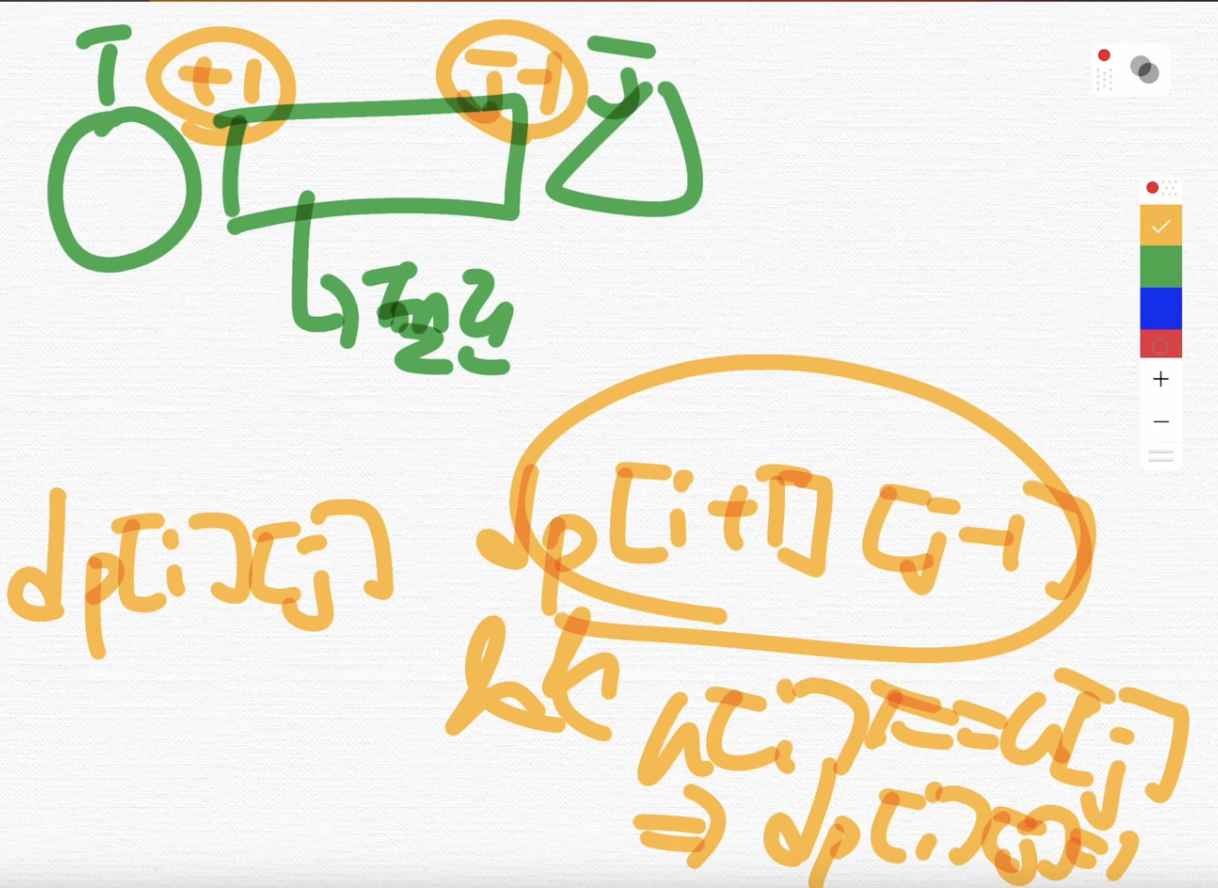 I +1 J-1 J
dp[i][j] dp[i+1][j-1]
&&
n[i]==n[j]
=> dp[i][j]=